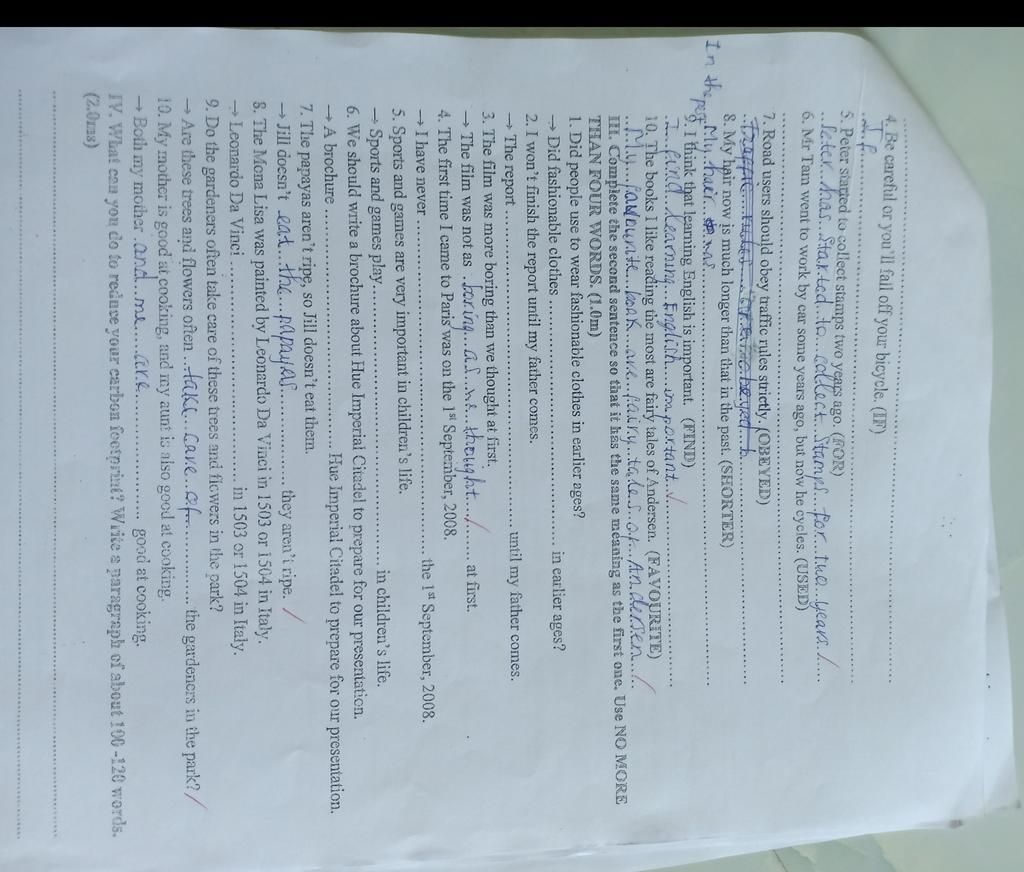 4. Be careful or you'll fall off your bicycle. (IF)
If
5. Peter started to collect stamps two years ago. (FOR)
Peter has started to collect stamps for two years
6. Mr Tam went to work by car some years ago, but now he cycles. (USED)
7. Road users should obey traffic rules strictly. (OBEYED)
Traffic rules
8. My hair now is much longer than that in the past. (SHORTER)
In the past My hair was
9. I think that learning English is important. (FIND)
I find learning English important
10. The books I like reading the most are fairy tales of Andersen. (FAVOURITE)
My favourite book are fairy tales of Andersen
III. Complete the second sentence so that it has the same meaning as the first one. Use NO MORE
THAN FOUR WORDS. (1.0m)
1. Did people use to wear fashionable clothes in earlier ages?
→ Did fashionable clothes .............................. in earlier ages?
2. I won't finish the report until my father comes.
→ The report .............................. until my father comes.
3. The film was more boring than we thought at first.
→ The film was not as boring as we thought at first.
4. The first time I came to Paris was on the 1st September, 2008.
→ I have never .............................. the 1st September, 2008.
5. Sports and games are very important in children's life.
→ Sports and games play .............................. in children's life.
6. We should write a brochure about Hue Imperial Citadel to prepare for our presentation.
→ A brochure .............................. Hue Imperial Citadel to prepare for our presentation.
7. The papayas aren't ripe, so Jill doesn't eat them.
→ Jill doesn't eat the papayas they aren't ripe.
8. The Mona Lisa was painted by Leonardo Da Vinci in 1503 or 1504 in Italy.
→ Leonardo Da Vinci .............................. in 1503 or 1504 in Italy.
9. Do the gardeners often take care of these trees and flowers in the park?
→ Are these trees and flowers often take care of the gardeners in the park?
10. My mother is good at cooking, and my aunt is also good at cooking.
→ Both my mother and me are good at cooking.
IV. What can you do to reduce your carbon footprint? Write a paragraph of about 100 -120 words.
(2.0ms)